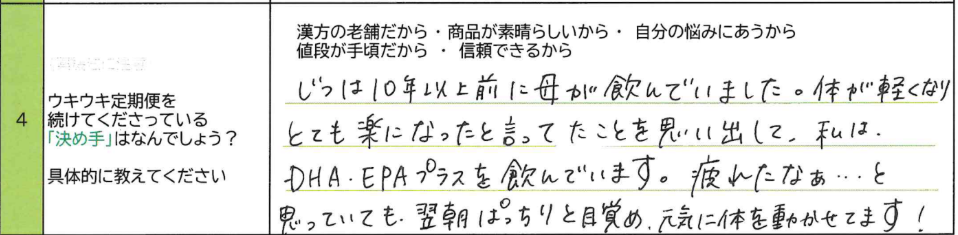 漢方の老舗だから・商品が素晴らしいから・ 自分の悩みにあうから
値段が手頃だから ・ 信頼できるから
4
ウキウキ定期便を
続けてくださっている
「決め手」はなんでしょう？
具体的に教えてください
じつは10年以上前に母が飲んでいました。体が軽くなり
とても楽になったと言ってたことを思い出して、私は、
DHA・EPAプラスを飲んでいます。疲れたなぁ…と
思っていても、翌朝ぱっちりと目覚め、元気に体を動かせてます！